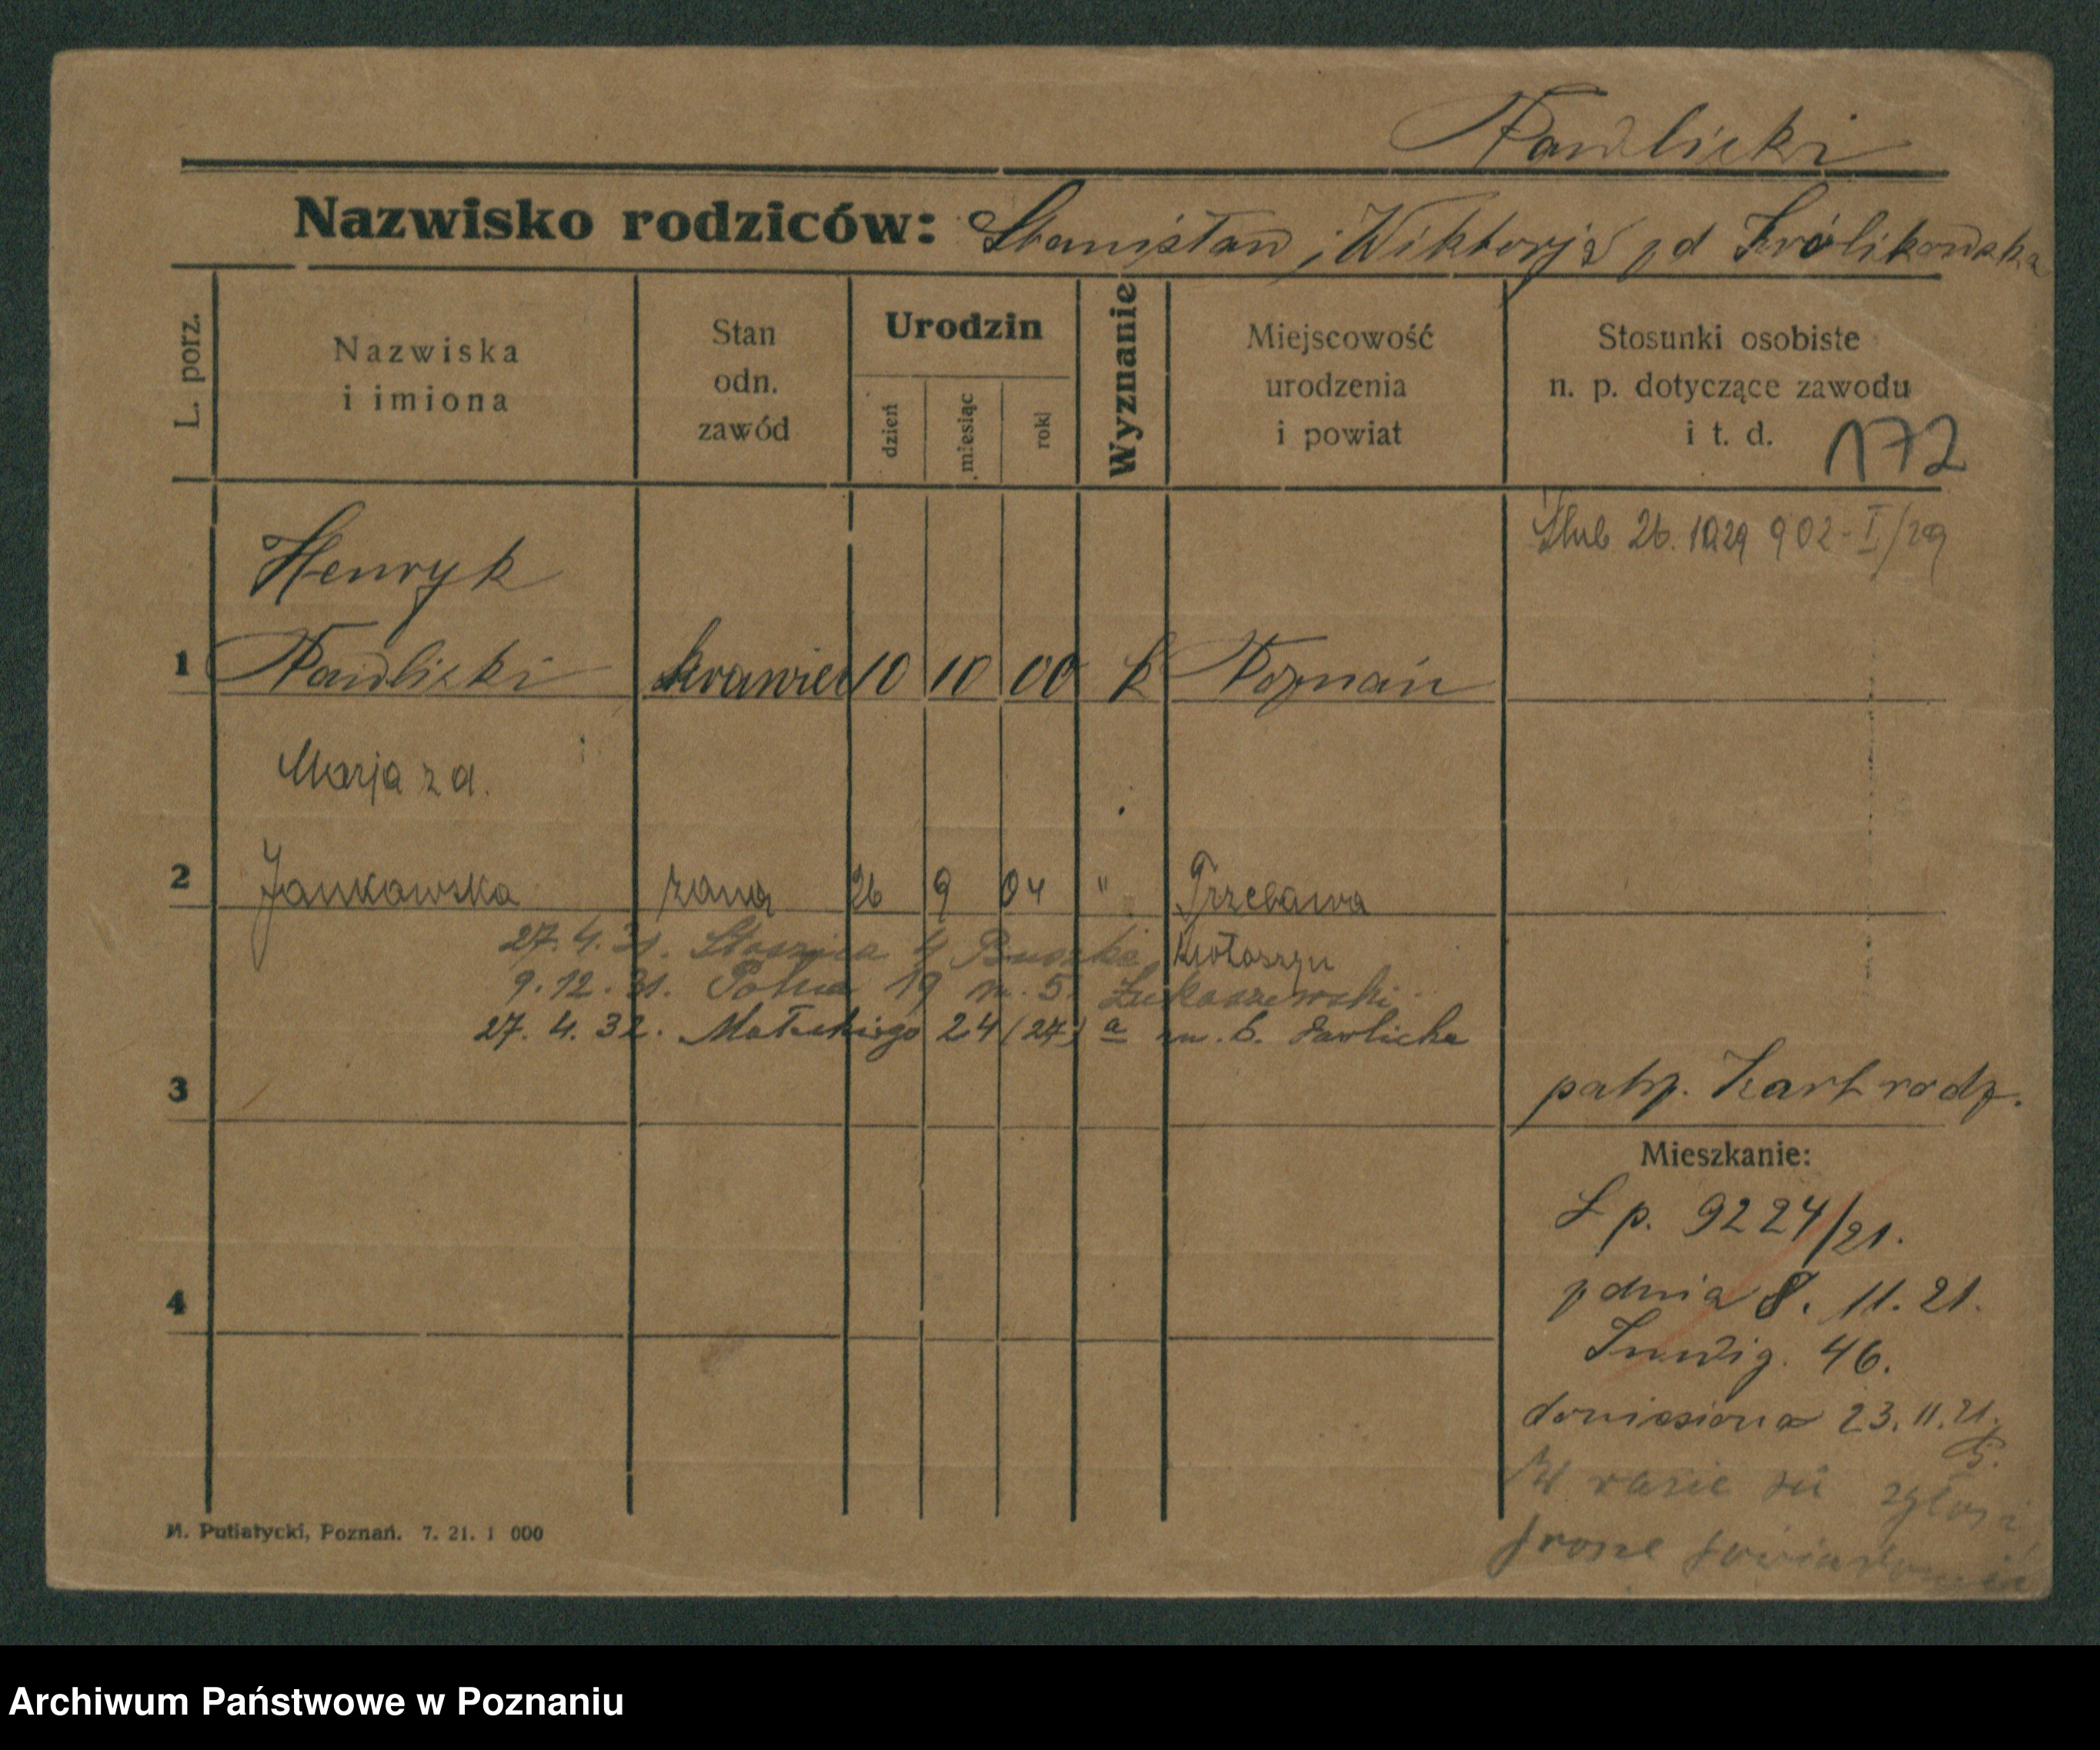 Pawlicki
Nazwisko rodziców: Stanisław i Wiktorja z d Królikowska
L. porz.
Nazwiska
i imiona
Stan
odn.
zawód
Urodzin
dzień
miesiąc
rok
Wyznanie
Miejscowość
urodzenia
i powiat
Stosunki osobiste
n. p. dotyczące zawodu
i t. d.
172
Ślub 26. 1929 902-I/29
Henryk
1 Pawlicki krawiec 10 10 00 k Poznań
Marja z d.
2 Jankowska żona 26 9 04 " Trzebawa
27. 4. 31. Staszica 4
9. 12. 31. Polna 19 m. 5. Łukaszewski
27. 4. 32. 24 (27) a m. 6. Pawlicka
3
patrz. Kart rodz.
Mieszkanie:
L p. 9224/21.
z dnia 8. 11. 21.
46.
doniesiona 23. 11. 21.
4
W razie się zgłosi
M. Putiatycki, Poznań. 7. 21. 1 000
Archiwum Państwowe w Poznaniu